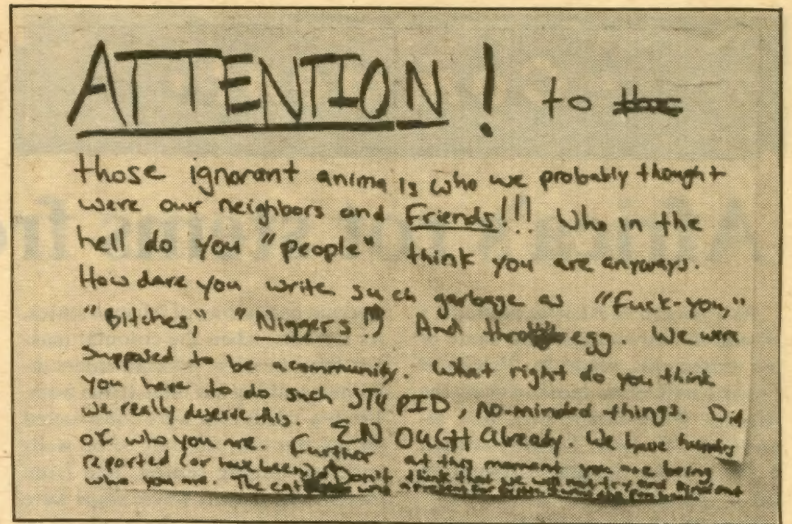 ATTENTION! to the
those ignorant animals who we probably thought
were our neighbors and Friends!!! Who in the
hell do you "people" think you are anyways.
How dare you write such garbage as "Fuck-you,"
"Bitches," "Niggers!!" And throw egg. We were
supposed to be a community. What right do you think
you have to do such STUPID, no-minded things. Did
we really deserve this. ENOUGH already. We have hunches
of who you are. Further at this moment you are being
reported (or have been). Don't think that we will not try and find out
who you are. The